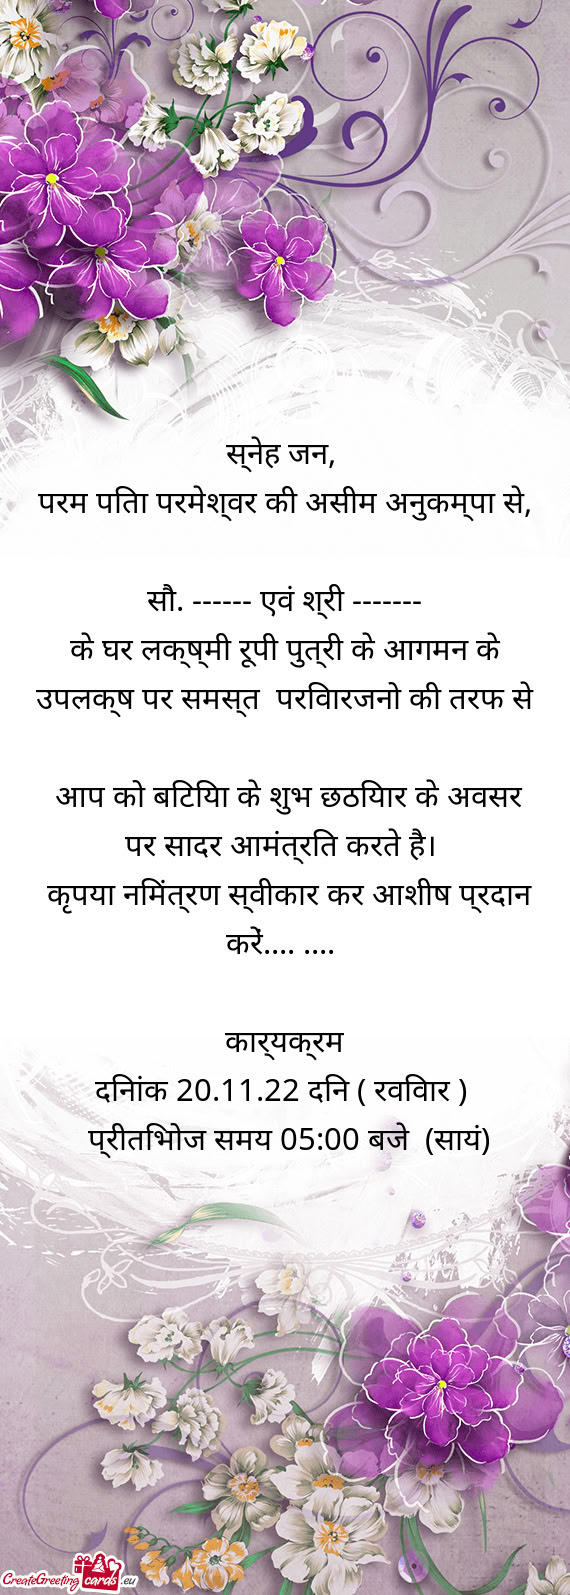 स्नेह जन,
परम पिता परमेश्वर की असीम अनुकम्पा से,
सौ. ------ एवं श्री -------
के घर लक्ष्मी रूपी पुत्री के आगमन के
उपलक्ष पर समस्त परिवारजनो की तरफ से
आप को बिटिया के शुभ छठियार के अवसर
पर सादर आमंत्रित करते है।
कृपया निमंत्रण स्वीकार कर आशीष प्रदान
करें.... ....
कार्यक्रम
दिनांक 20.11.22 दिन ( रविवार )
प्रीतिभोज समय 05:00 बजे (सायं)
CreateGreetingcards.eu